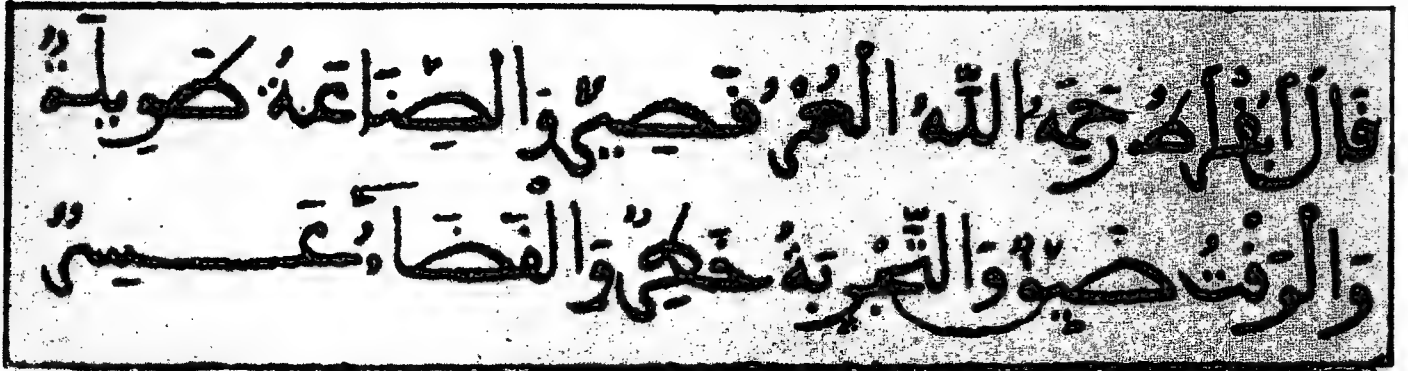 قَالَ أَبُقْرَاطُ رَحِمَهُ اللَّهُ الْعُمْرُ قَصِيرٌ وَالصِّنَاعَةُ طَوِيلَةٌ
وَالْوَقْتُ ضَيِّقٌ وَالتَّجْرِبَةُ خَطِرٌ وَالْقَضَاءُ عَسِيرٌ